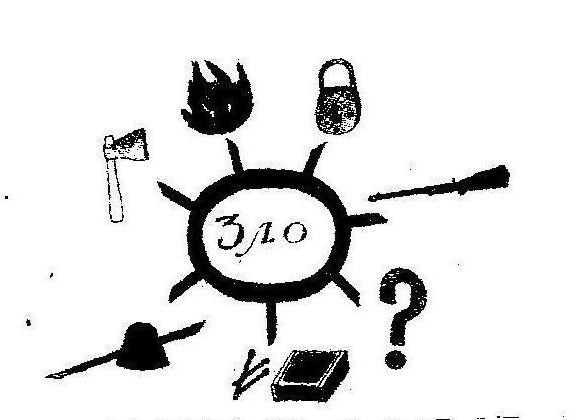 Зло
?